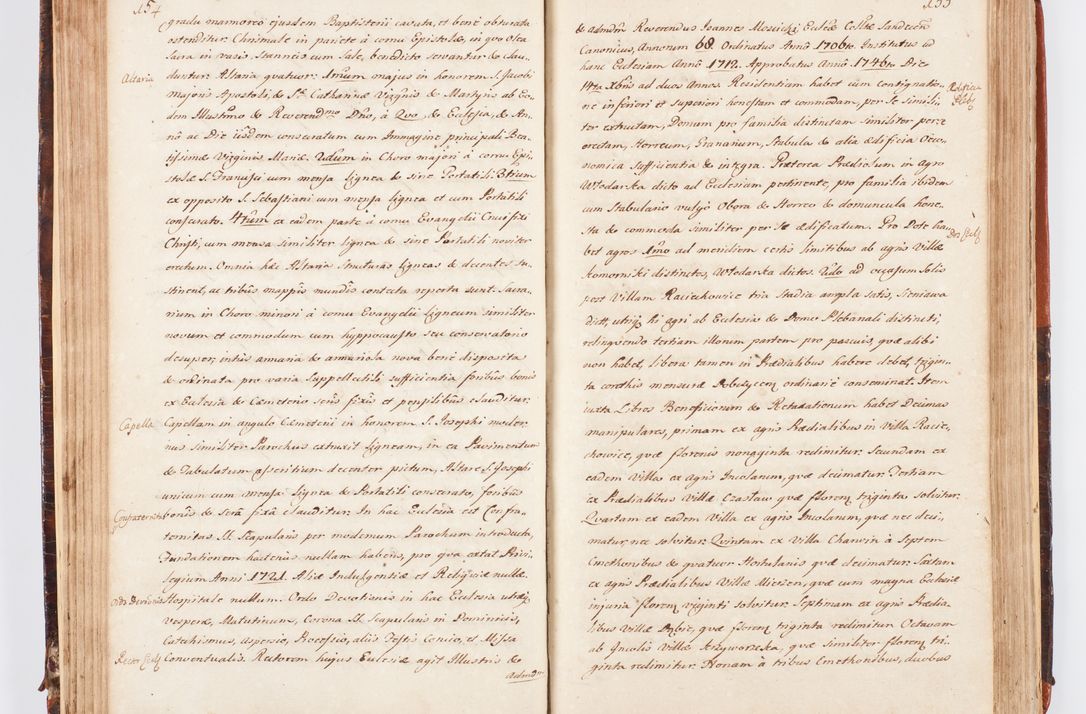 154
gradu marmoreo ejusdem Baptisterii cavata, et bene obturata
ostenditur. Chrismale in pariete à cornu Epistolæ, in quo Olea
Sacra in vasis Stanneis cum Sale, benedicto servantur & clau-
Altaria
duntur. Altaria quatuor. Imum majus in honorem S. Jacobi
majoris Apostoli, & Stæ Catharinæ Virginis & Martyris ab Eo-
dem Illustmo & Reverendmo Dño, à Quo, & Eclesia, & An-
nô ac Die iisdem consecratum cum Immagine principali Bea-
tissimæ Virginis Mariæ. 2dum in Choro majori à cornu Epi-
stolæ S. Francisci cum mensa lignea & sine Portatili. 3tium
ex opposito S. Sebastiani cum mensa lignea et cum Portatili
consecrato. 4tum ex eadem parte à cornu Evangelii Crucifixi
Christi, cum mensa similiter lignea & sine Portatili noviter
erectum. Omnia hæc Altaria structuras ligneas & decentes su-
stinent, ac tribus mappis mundis contecta reperta sunt. Sacra-
rium in Choro minori à cornu Evangelii ligneum similiter
novum et commodum cum hyppocausto seu conservatorio
desuper, intus armaria & armariola nova bene disposita
& ordinata pro varia suppellectili sufficientia foribus bonis
ex Ecclesia & Cæmeterio seris fixis et pensilibus clauditur.
Capella
Capellam in angulo Cæmeterii in honorem S. Josephi moder-
nus similiter Parochus extruxit ligneam, in ea Pavimentum
& Tabulatum asseritium decenter pictum, Altare S. Josephi
unicum cum mensa lignea & Portatili consecrato, foribus
Confraternitas
bonis & serâ fixâ clauditur. In hac Eclesia est Confra-
ternitas SS. Scapularis per modernum Parochum introducta,
Fundationem hactenus nullam habens, pro qua extat Privi-
legium Anni 1721. Aliæ Indulgentiæ et Reliquiæ nullæ.
Ordo Devotionis
Hospitale nullum. Ordo Devotionis in hac Eclesia utriusq
Vesperæ, Matutinum, Corona SS. Scapularis in Dominicis,
Catechismus, aspersio, Processio, aliis Festis Concio, et Missa
Rector Eccl
Conventualis. Rectorem hujus Eclesiæ agit Illustris &
Admdm
155
& admdm Reverendus Ioannes Mosicki Eclæ Collæ Sandecen
Canonicus, Annorum 68. Ordinatus Annô 1706to. Institutus ad
hanc Eclesiam Annô 1712. Approbatus Annô 1746to Die
14ta Xbris ad duos Annos. Residentiam habet cum contignatio-
ne inferiori et superiori honestam et commodam, per se simili-
ter extructam, Domum pro familia distinctam similiter per se
erectam, Horreum, Granarium, stabula & alia ædificia Oeco-
nomica sufficientia & integra. Præterea Prædiolum in agro
Włodarska dicto ad Eclesiam pertinente, pro familia ibidem
cum Stabulario vulgo Obora & Horreo & domuncula hone-
sta & commoda similiter per se ædificatum. Pro Dote ha-
Dos Eccl
bet agros Imo ad meridiem certis limitibus ab agris Villæ
Komornski distinctos, Włodarska dictos. 2do ad occasum Solis
post Villam Raciechowice tria stadia ampla satis, Sieniawa
dicta, utriq hi agri ab Eclesia & Domo Plebanali distincti,
relinquendo tertiam illorum partem pro pascuis, quæ alibi
non habet, libera tamen in Prædialibus habere debet, trigin-
ta corethis mensuræ ordinariè conseminat. Item
iuxta Libros Beneficiorum & Retaxationum habet Decimas
manipulares, primam ex agris Prædialibus in Villa Racie-
chowice, quæ florenis nonaginta redimitur. Secundam ex
eadem Villa ex agris Incolarum, quæ decimatur. Tertiam
ex Prædialibus Villæ Czasław quæ floren triginta solvitur.
Quartam ex eadem Villa ex agris Incolarum, quæ nec deci-
matur, nec solvitur. Quintam ex Villa Charwin à Septem
Cmethonibus & quatuor Hortulanis quæ decimatur. Sextam
ex agris Prædialibus Villæ Mierzen, quæ cum magna Eclesiæ
injuria floren viginti solvitur. Septimam ex agris Prædia-
libus Villæ, quæ floren triginta redimitur. Octavam
ab Incolis Villæ Krzyworzeka, quæ similiter floren tri-
ginta redimitur. Nonam à tribus Cmethonibus, duobus